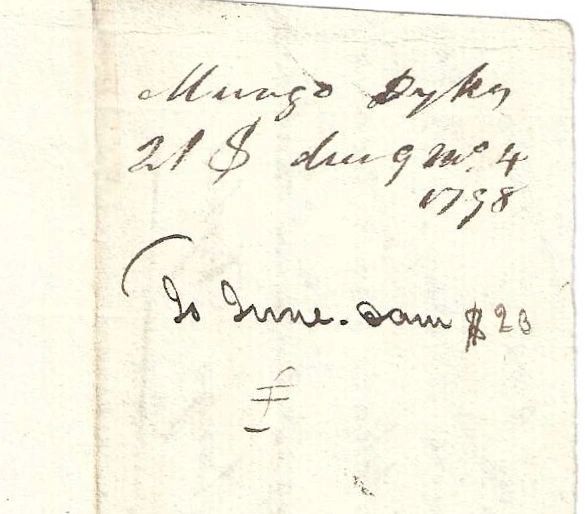 Mungo Dykes
21 $ due 9 mo 4
1798
To June. Sam $ 23